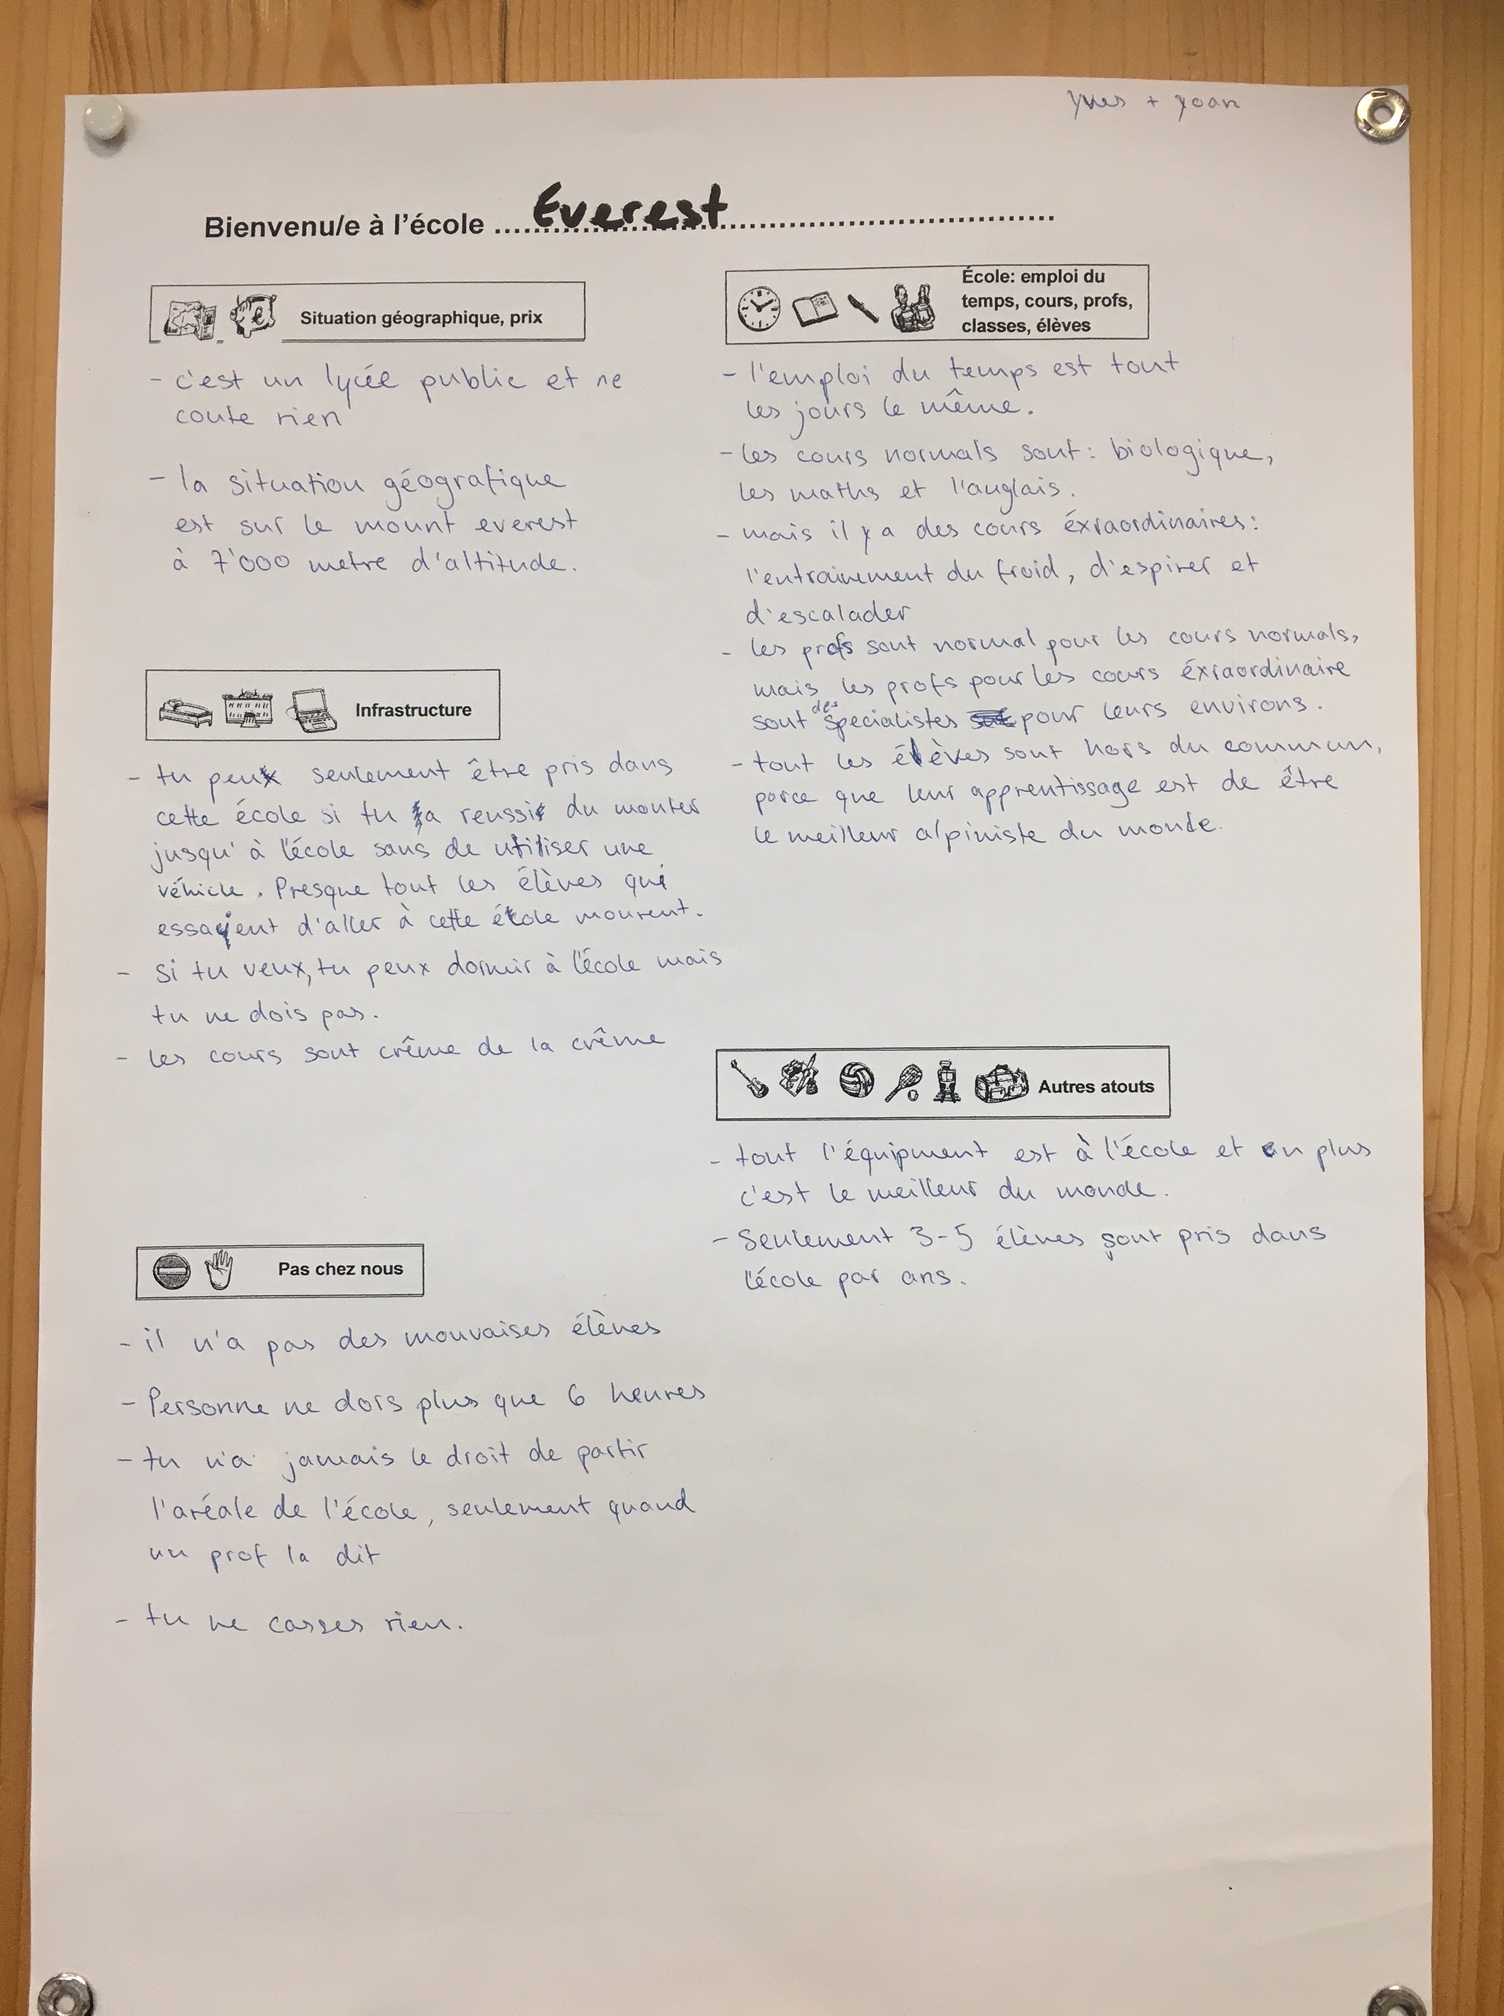 Yves + Yoan
Bienvenu/e à l'école ....Everest....
Situation géographique, prix
- c'est un lycée public et ne
coute rien
- la situation géografique
est sur le mount everest
à 7'000 metre d'altitude.
Infrastructure
- tu peux seulement être pris dans
cette école si tu a reussi du monter
jusqu'à l'école sans de utiliser une
véhicle. Presque tout les élèves qui
essayent d'aller à cette école mourent.
- si tu veux, tu peux dormir à l'école mais
tu ne dois pas.
- les cours sont crême de la crême
Pas chez nous
- il n'a pas des mouvaises élèves
- Personne ne dors plus que 6 heures
- tu n'a jamais le droit de partir
l'aréale de l'école, seulement quand
un prof la dit
- tu ne casses rien.
École: emploi du
temps, cours, profs,
classes, élèves
- l'emploi du temps est tout
les jours le même.
- les cours normals sont: biologique,
les maths et l'anglais.
- mais il y a des cours éxraordinaires:
l'entrainement du froid, d'espirer et
d'escalader
- les profs sont normal pour les cours normals,
mais les profs pour les cours éxraordinaire
sont des specialistes pour leurs environs.
- tout les élèves sont hors du commun,
parce que leur apprentissage est de être
le meilleur alpiniste du monde.
Autres atouts
- tout l'équipment est à l'école et en plus
c'est le meilleur du monde.
- Seulement 3-5 élèves sont pris dans
l'école par ans.